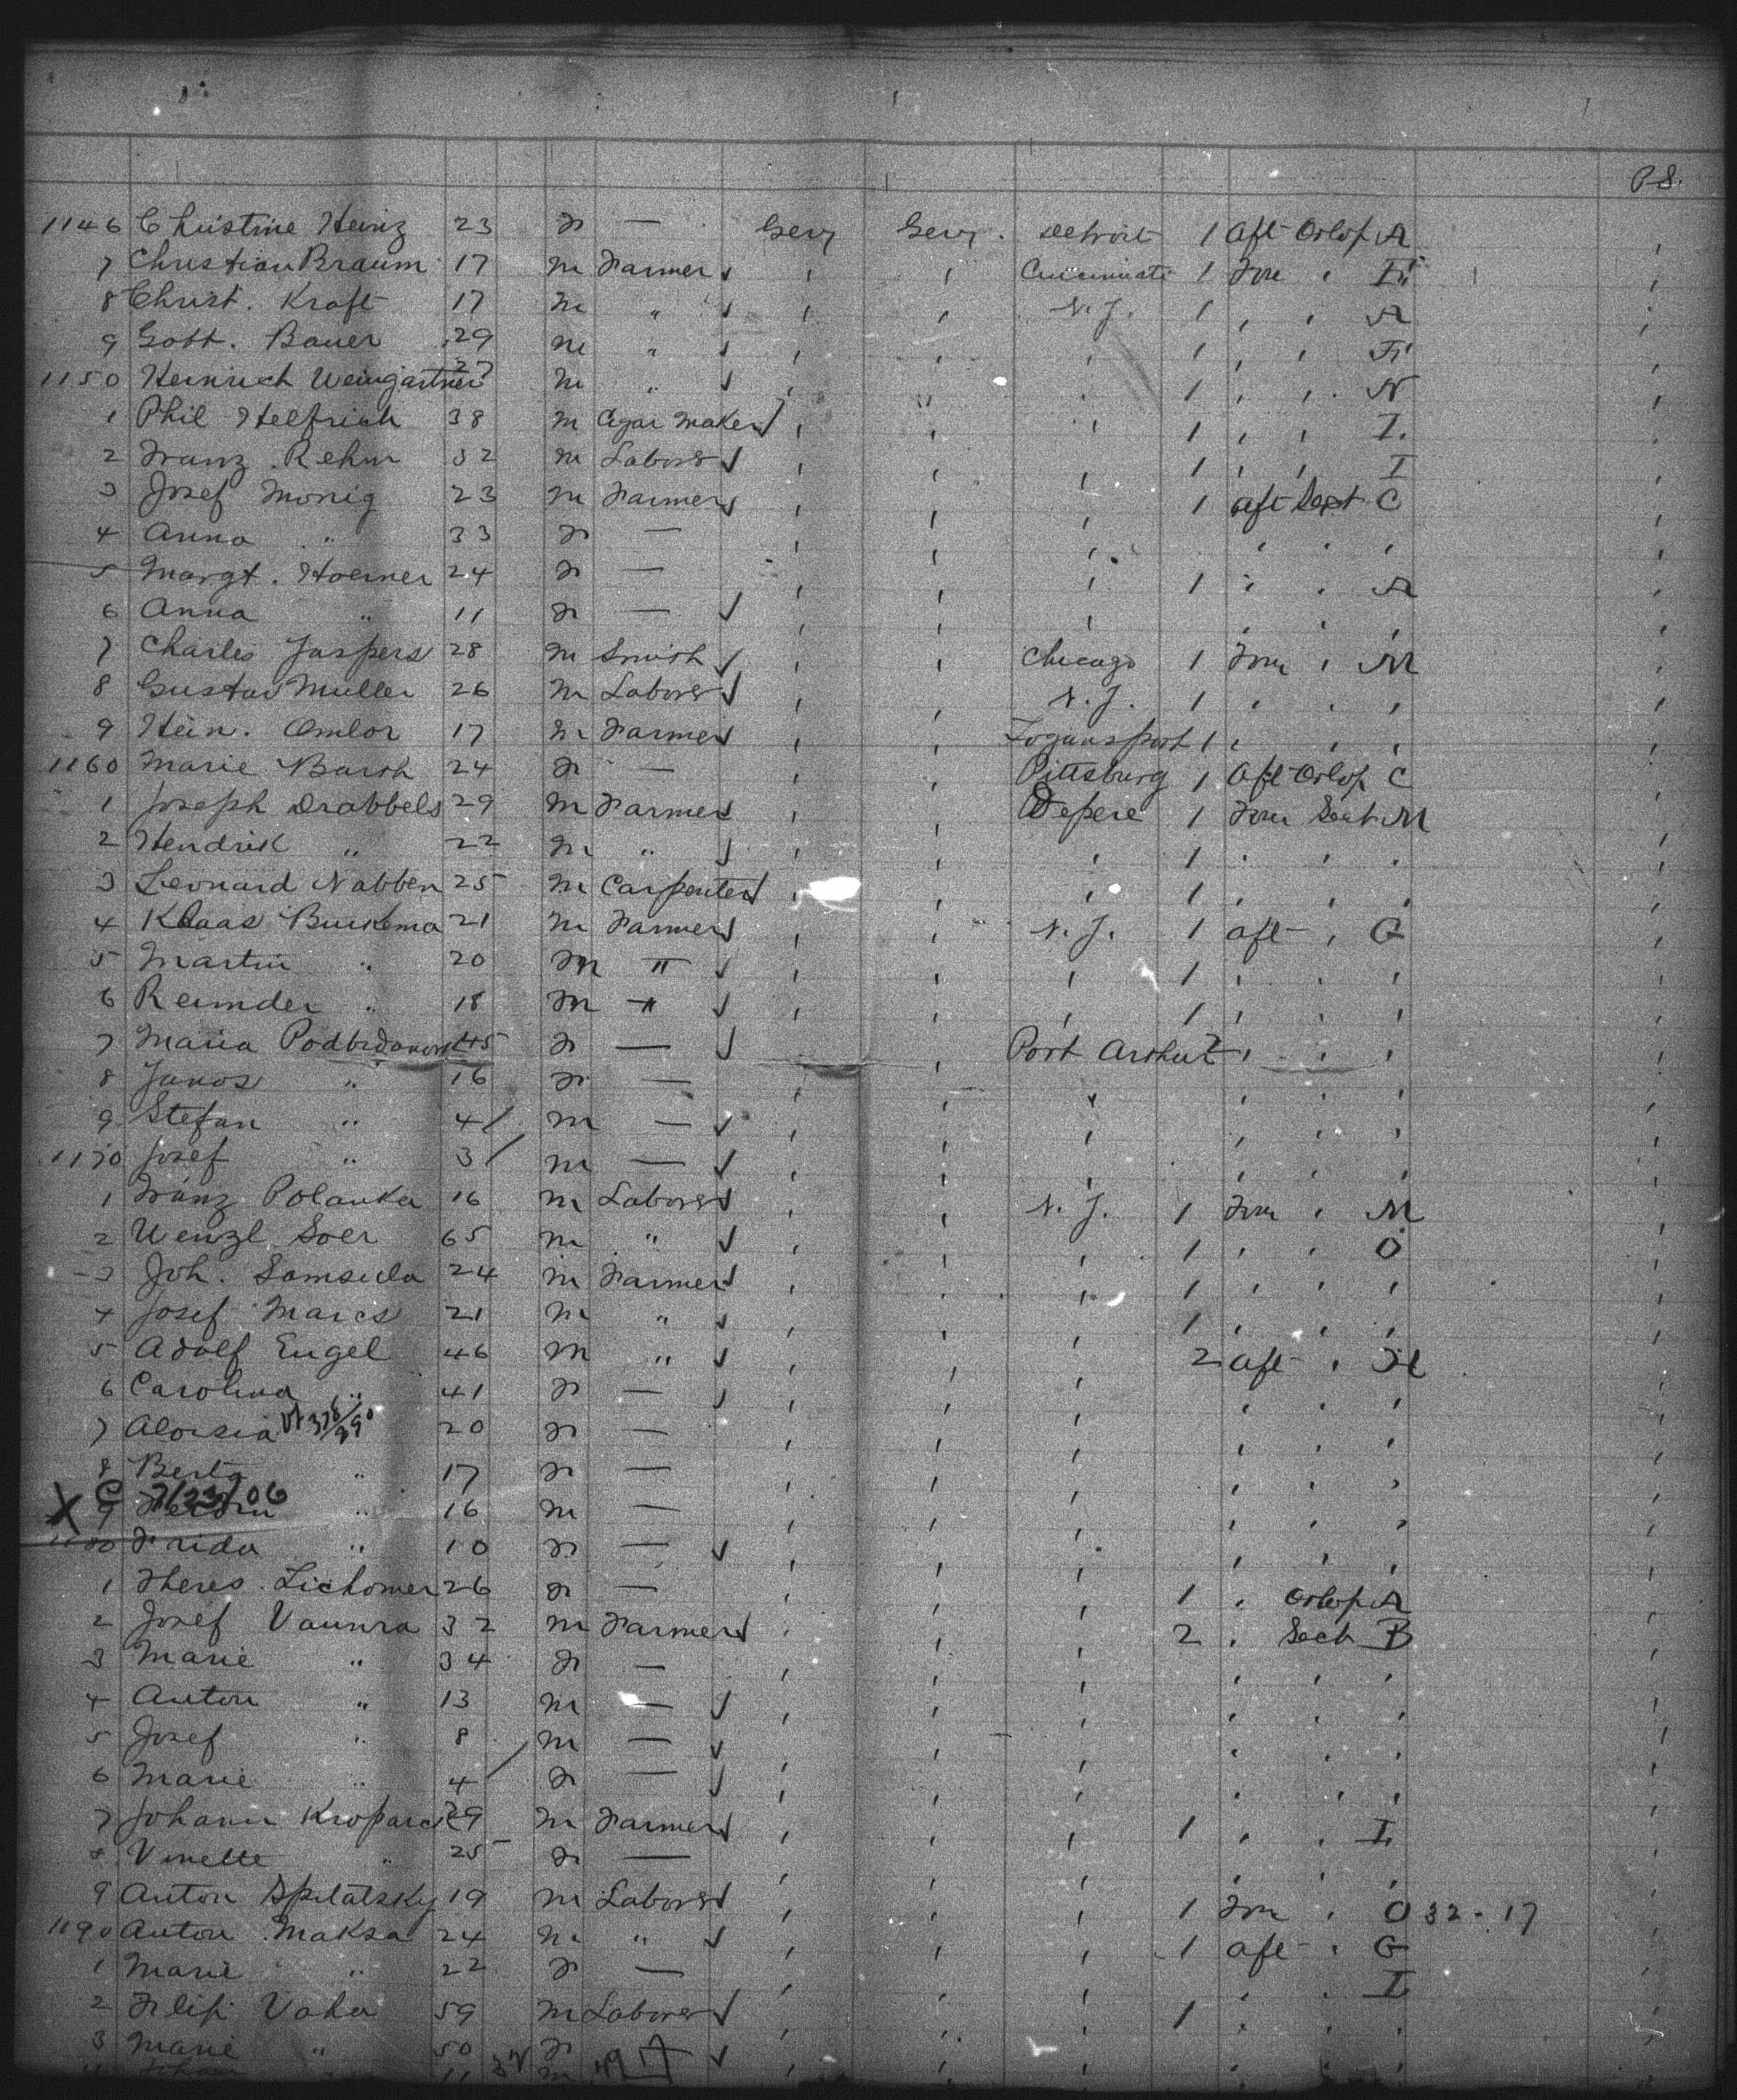 P.S.
1146 Christine Heinz 23 F — Gery Gery. Detroit 1 Aft Orlop A ,
7 Christian Braum 17 M Farmer ✓ , , Cincinnati 1 Fore , ,
8 Christ. Kraft 17 M " ✓ , , N.J. 1 , , A ,
9 Gott. Bauer 29 M " ✓ , , , 1 , , ,
1150 Heinrich Weingartner 27 M " ✓ , " , 1 , , N ,
1 Phil Helfrich 38 M Cigar Maker ✓ , , , 1 , , I. ,
2 Franz Rehm 32 M Laborer ✓ , , , 1 , , I ,
3 Josef Monig 23 M Farmer ✓ , , , 1 aft Sect C ,
4 Anna " 33 F — , , , , , , ,
5 Margt. Hoerner 24 F — , , , 1 , , A ,
6 Anna " 11 F — ✓ , , , , , , ,
7 Charles Jaspers 28 M Smith ✓ , , Chicago 1 Fore , M ,
8 Gustav Muller 26 M Laborer ✓ , , N.J. 1 , , , ,
9 Hein. Omlor 17 M Farmer ✓ , , Logansport 1 , , , ,
1160 Marie Barth 24 F — , , Pittsburg 1 Aft Orlop C ,
1 Joseph Drabbels 29 M Farmer ✓ , , Depere 1 Fore Sect M ,
2 Hendrik " 22 M " ✓ , , , 1 , , , ,
3 Leonard Nabben 25 M Carpenter ✓ , , , 1 , , , ,
4 Klaas Buikema 21 M Farmer ✓ , , N.J. 1 aft , G ,
5 Martin " 20 M " ✓ , , , 1 , , , ,
6 Reimder " 18 M " ✓ , , , 1 , , , ,
7 Maria 45 F — ✓ , Port Arthur 2 , , , ,
8 Janos " 16 F — , , , , , , ,
9 Stefan " 4/ M — ✓ , , , , , , ,
1170 Josef " 3/ M — ✓ , , , , , , ,
1 Franz Polanka 16 M Laborer ✓ , , N.J. 1 Fore , M ,
2 Wenzl Soer 65 M " ✓ , , , 1 , , O ,
3 Joh. Samsula 24 M Farmer ✓ , , , 1 , , , ,
4 Josef Marcs 21 M " ✓ , , , 1 , , , ,
5 Adolf Engel 46 M " ✓ , , , 2 aft , H ,
6 Carolina " 41 F — ✓ , , , , , , ,
7 Aloisia 20 F — , , , , , , ,
8 Berta " 17 F — , , , , , , ,
X C 7/23/06
9 " 16 M — , , , , , , ,
1180 Frida " 10 F — ✓ , , , , , , ,
1 Theres. Lichomer 26 F — , , , 1 , Orlop A ,
2 Josef Vaunra 32 M Farmer ✓ , , , 2 , Sect B ,
3 Marie " 34 F — , , , , , , ,
4 Anton " 13 M — ✓ , , , , , , ,
5 Josef " 8 M — ✓ , , , , , , ,
6 Marie " 4/ F — ✓ , , , , , , ,
7 Johann 29 M Farmer ✓ , , , 1 , , I ,
8 Vinette " 25 F — , , , , , , ,
9 Anton Spilatsky 19 M Laborer ✓ , , , 1 Fore , O 32-17 ,
1190 Anton Maksa 24 M " ✓ , , , 1 aft , G ,
1 Marie " 22 F — , , , , , I ,
2 Filip Vaha 59 M Laborer ✓ , , , 1 , , , ,
3 Marie " 50 F ✓ , , , , , , ,